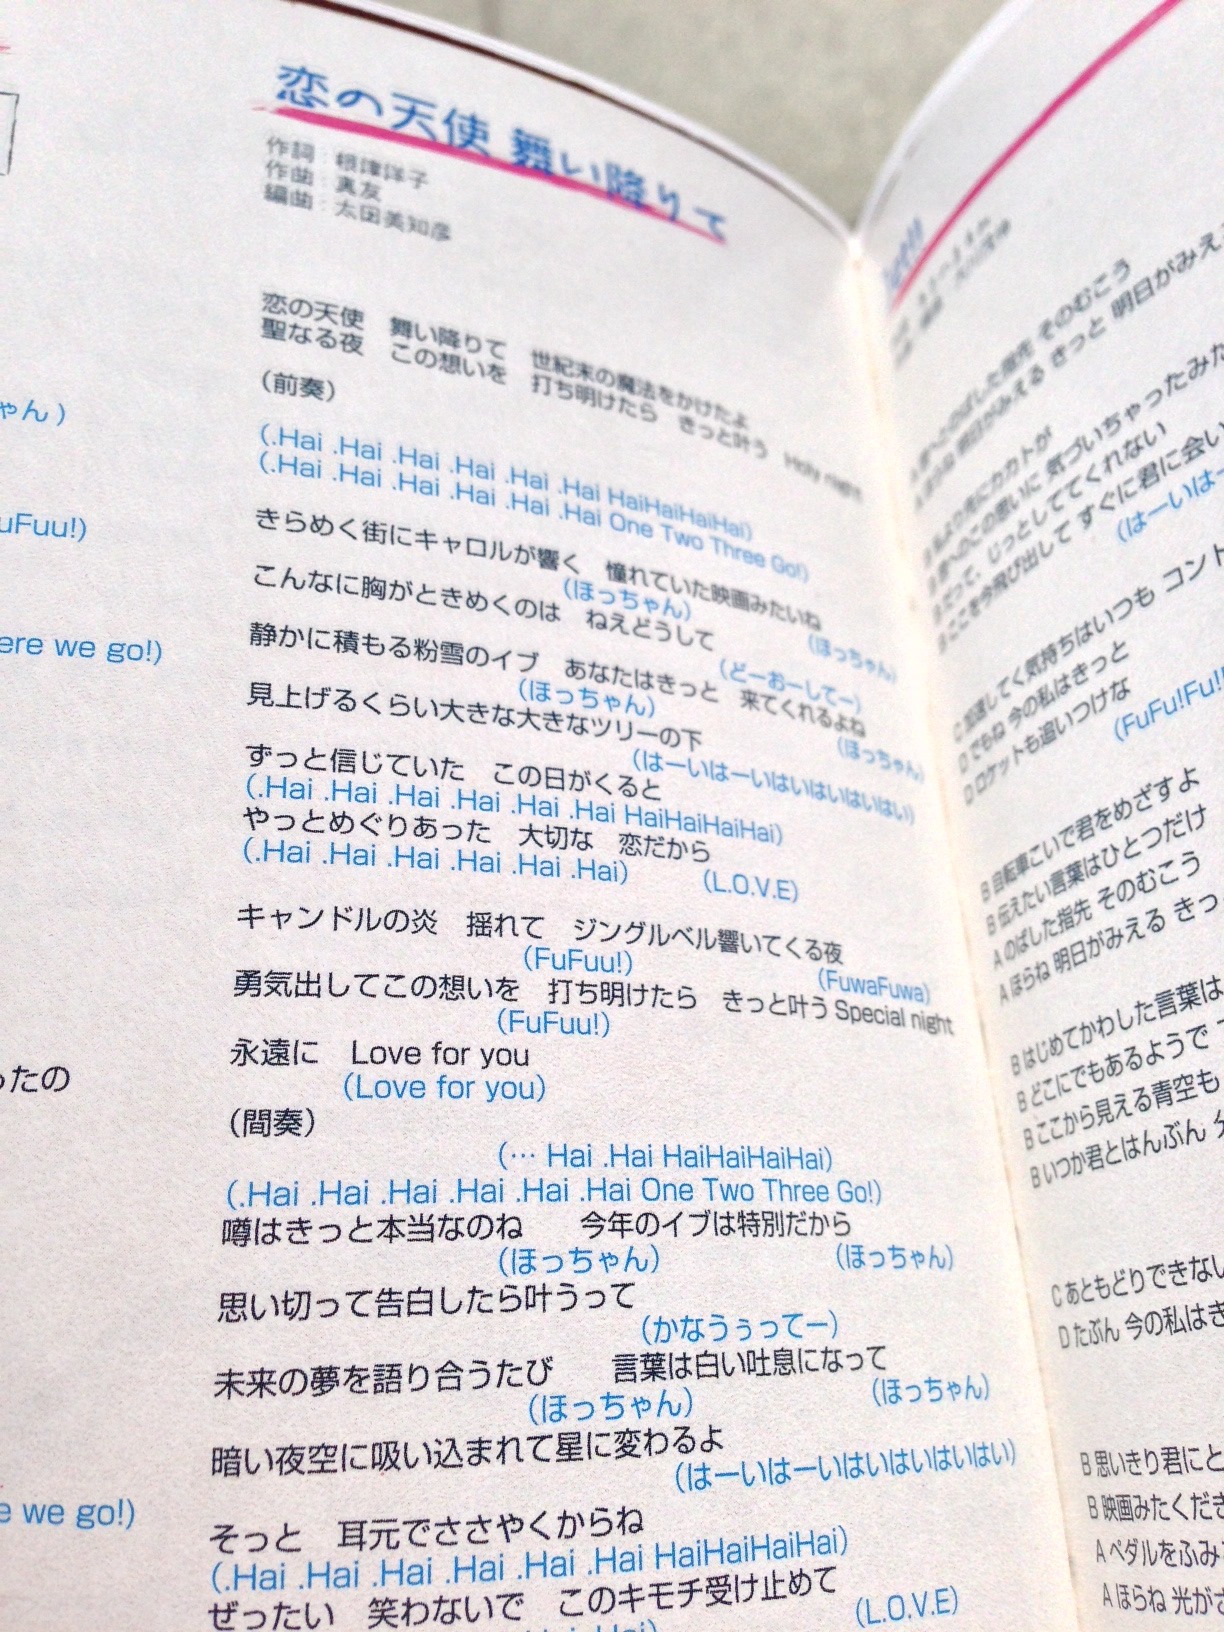 ゃん）
uFuu!)
ere we go!)
ったの
e we go!)
恋の天使 舞い降りて
作詞：根津洋子
作曲：真友
編曲：太田美知彦
恋の天使　舞い降りて　世紀末の魔法をかけたよ
聖なる夜　この想いを　打ち明けたら　きっと叶う　Holy night
（前奏）
(.Hai .Hai .Hai .Hai .Hai .Hai HaiHaiHaiHai)
(.Hai .Hai .Hai .Hai .Hai .Hai One Two Three Go!)
きらめく街にキャロルが響く　憧れていた映画みたいね
（ほっちゃん）　（ほっちゃん）
こんなに胸がときめくのは　ねえどうして
（どーおーしてー）
静かに積もる粉雪のイブ　あなたはきっと　来てくれるよね
（ほっちゃん）　（ほっちゃん）
見上げるくらい大きな大きなツリーの下
（はーいはーいはいはいはいはい）
ずっと信じていた　この日がくると
(.Hai .Hai .Hai .Hai .Hai .Hai HaiHaiHaiHai)
やっとめぐりあった　大切な　恋だから
(.Hai .Hai .Hai .Hai .Hai .Hai)　(L.O.V.E)
キャンドルの炎　揺れて　ジングルベル響いてくる夜
(FuFuu!)　(FuwaFuwa)
勇気出してこの想いを　打ち明けたら　きっと叶う Special night
(FuFuu!)
永遠に　Love for you
(Love for you)
（間奏）
(… Hai .Hai HaiHaiHaiHai)
(.Hai .Hai .Hai .Hai .Hai .Hai One Two Three Go!)
噂はきっと本当なのね　今年のイブは特別だから
（ほっちゃん）　（ほっちゃん）
思い切って告白したら叶うって
（かなうぅってー）
未来の夢を語り合うたび　言葉は白い吐息になって
（ほっちゃん）　（ほっちゃん）
暗い夜空に吸い込まれて星に変わるよ
（はーいはーいはいはいはいはい）
そっと　耳元でささやくからね
(.Hai .Hai .Hai .Hai .Hai .Hai HaiHaiHaiHai)
ぜったい　笑わないで　このキモチ受け止めて
(L.O.V.E)
のばした指先 そのむこう
明日がみえる きっと 明日がみえ
気づいちゃったみた
じっとしててくれない
ここを今飛び出して すぐに君に会い
（はーいはー
C 加速してく気持ちはいつも コント
D でもね 今の私はきっと
D ロケットも追いつけな
(FuFu!Fu!
B 自転車こいで君をめざすよ
B 伝えたい言葉はひとつだけ
A のばした指先 そのむこう
A ほらね 明日がみえる きっ
B はじめてかわした言葉は
B どこにでもあるようで
B ここから見える青空も
B いつか君とはんぶん
C あともどりできない
D たぶん 今の私はき
B 思いきり君にと
B 映画みたくだき
A ペダルをふみ
A ほらね 光がさ